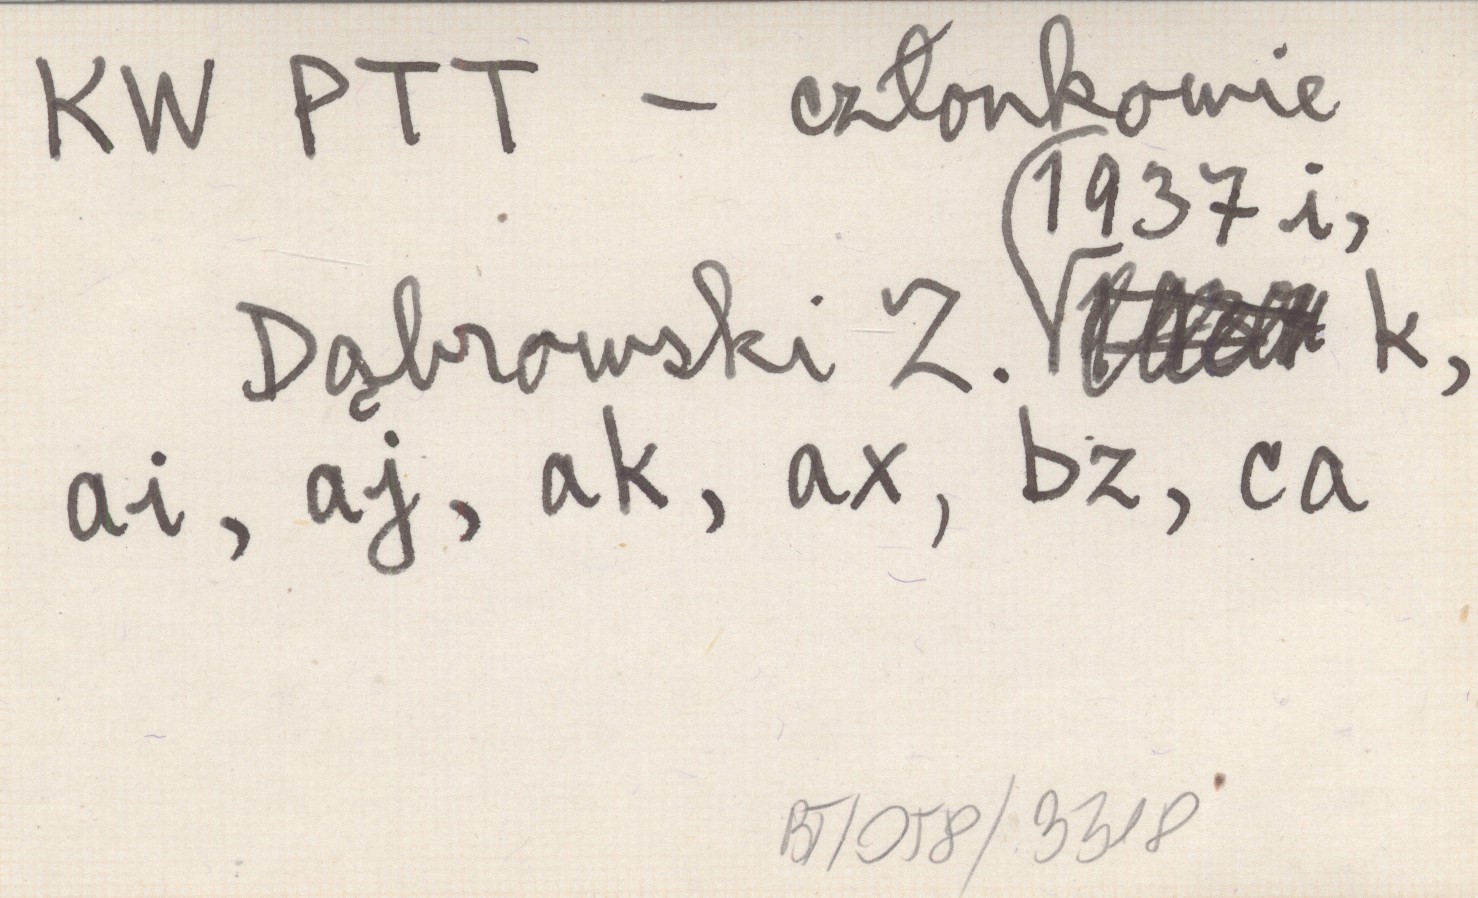 KW PTT - członkowie
1937 i,
Dąbrowski Z. k,
ai, aj, ak, ax, bz, ca
BT/058/3318